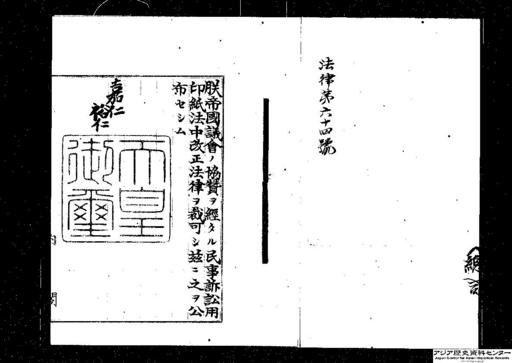 法律第六十四號
朕帝國議會ノ協賛ヲ經タル民事訴訟用
印紙法中改正法律ヲ裁可シ茲ニ之ヲ公
布セシム
嘉仁
裕仁
天皇
御璽
内
閣
アジア歴史資料センター
Japan Center for Asian Historical Records